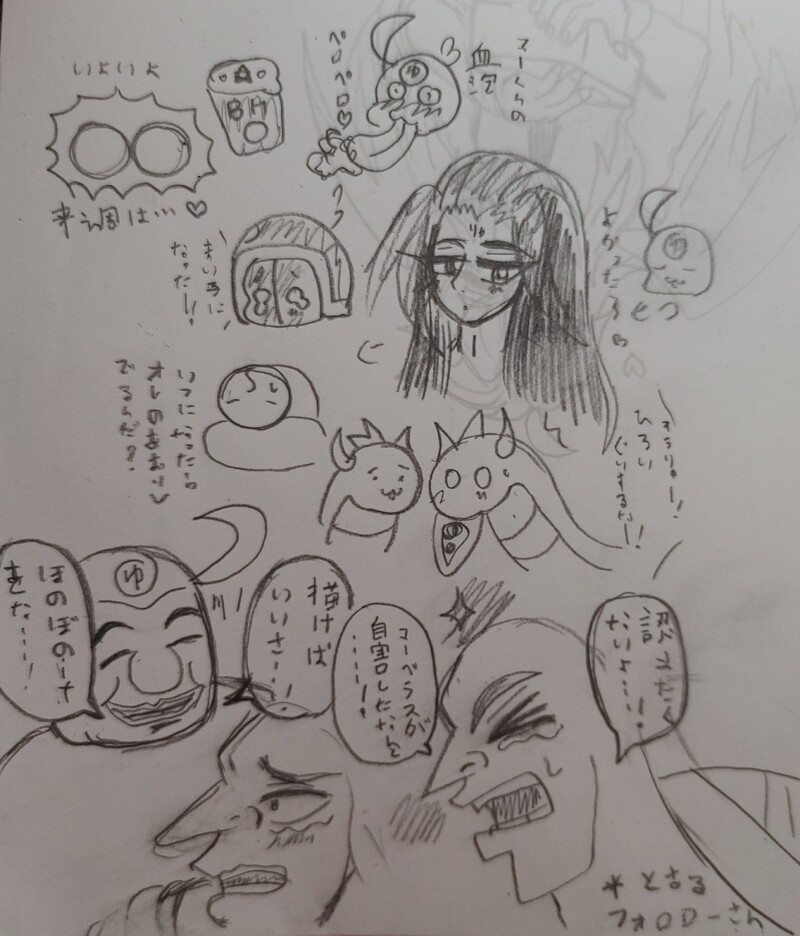 いよいよ
来週は…♡
BA
ペロペロ♡
ゆ
すーくんの
血泡
まい子に
なったー!
りゅ
よかったろ
ゆ
いつになったら
オレのあまり
でるんだ?
ひろい
ぐいするなー!
ほのぼの
きた…!
ゆ
描けば
いいさ…!
コーベラスが
自害したなんて
……!
認めたく
ないよ…!
*とある
フォロワーさん